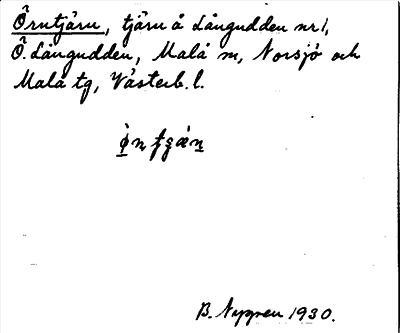 Örntjärn, tjärn å Långudden nr 1,
Ö. Långudden, Malå sn, Norsjö och
Malå tg, Västerb. l.
B. Nygren 1930.